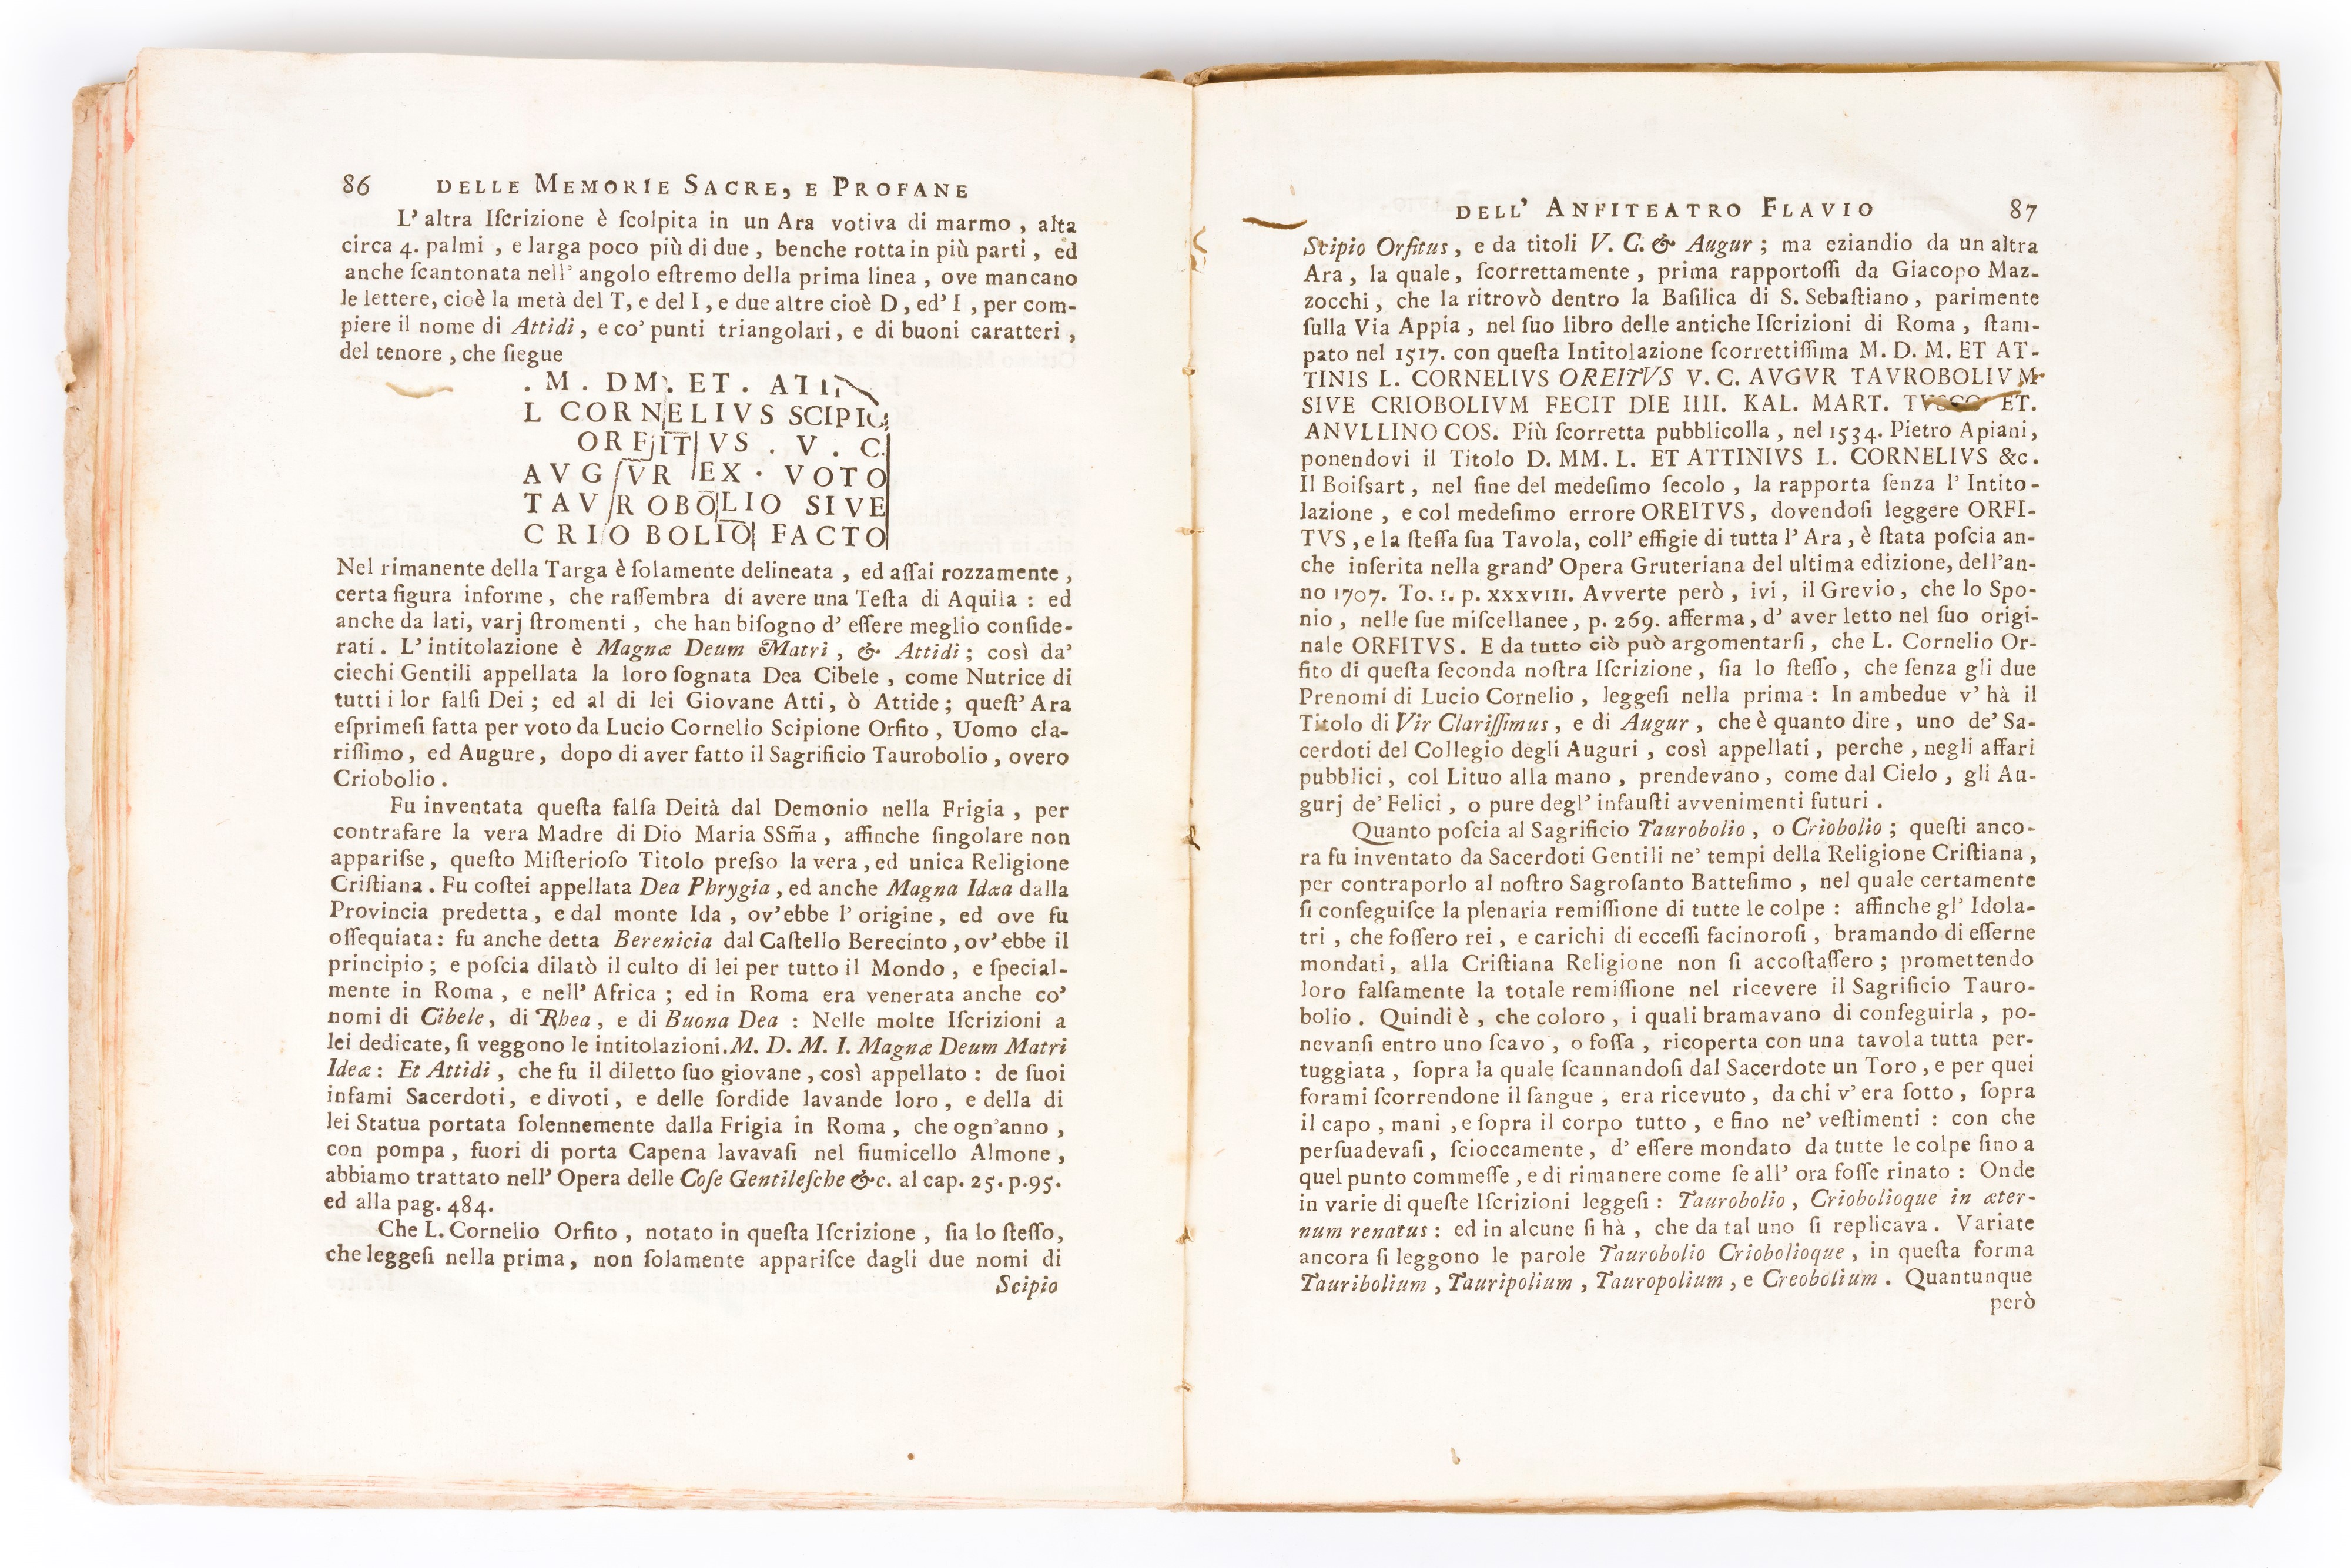 86 DELLE MEMORIE SACRE, E PROFANE
L' altra Iſcrizione è ſcolpita in un Ara votiva di marmo , alta
circa 4. palmi , e larga poco più di due , benche rotta in più parti , ed
anche ſcantonata nell' angolo eſtremo della prima linea , ove mancano
le lettere, cioè la metà del T, e del I , e due altre cioè D , ed' I , per com-
piere il nome di Attidi , e co' punti triangolari , e di buoni caratteri ,
del tenore , che ſiegue
. M . DM . ET . ATI
L CORNELIVS SCIPIO
ORFIT VS . V . C
AVGVR EX · VOTO
TAVROBOLIO SIVE
CRIOBOLIO FACTO
Nel rimanente della Targa è ſolamente delineata , ed aſſai rozzamente ,
certa figura informe , che raſſembra di avere una Teſta di Aquila : ed
anche da lati, varj ſtromenti , che han biſogno d' eſſere meglio conſide-
rati . L' intitolazione è Magnæ Deum Matri , & Attidi ; così da'
ciechi Gentili appellata la loro ſognata Dea Cibele , come Nutrice di
tutti i lor falſi Dei ; ed al di lei Giovane Atti, ò Attide ; queſt' Ara
eſprimeſi fatta per voto da Lucio Cornelio Scipione Orfito , Uomo cla-
riſſimo, ed Augure, dopo di aver fatto il Sagrificio Taurobolio , overo
Criobolio .
Fu inventata queſta falſa Deità dal Demonio nella Frigia , per
contrafare la vera Madre di Dio Maria SSm̃a , affinche ſingolare non
appariſse , queſto Miſterioſo Titolo preſso la vera , ed unica Religione
Criſtiana . Fu coſtei appellata Dea Phrygia , ed anche Magna Idæa dalla
Provincia predetta , e dal monte Ida , ov'ebbe l' origine , ed ove fu
oſſequiata : fu anche detta Berenicia dal Caſtello Berecinto , ov'ebbe il
principio ; e poſcia dilatò il culto di lei per tutto il Mondo , e ſpecial-
mente in Roma , e nell' Africa ; ed in Roma era venerata anche co'
nomi di Cibele, di Rhea, e di Buona Dea : Nelle molte Iſcrizioni a
lei dedicate, ſi veggono le intitolazioni. M. D. M. I. Magnæ Deum Matri
Ideæ : Et Attidi , che fu il diletto ſuo giovane , così appellato : de ſuoi
infami Sacerdoti, e divoti , e delle ſordide lavande loro , e della di
lei Statua portata ſolennemente dalla Frigia in Roma , che ogn'anno ,
con pompa , fuori di porta Capena lavavaſi nel fiumicello Almone ,
abbiamo trattato nell' Opera delle Coſe Gentileſche &c. al cap. 25. p.95.
ed alla pag. 484.
Che L. Cornelio Orfito , notato in queſta Iſcrizione , ſia lo ſteſſo,
che leggeſi nella prima, non ſolamente appariſce dagli due nomi di
Scipio
DELL' ANFITEATRO FLAVIO 87
Scipio Orfitus , e da titoli V. C. & Augur ; ma eziandio da un altra
Ara , la quale, ſcorrettamente , prima rapportoſſi da Giacopo Maz-
zocchi , che la ritrovò dentro la Baſilica di S. Sebaſtiano , parimente
ſulla Via Appia , nel ſuo libro delle antiche Iſcrizioni di Roma , ſtam-
pato nel 1517. con queſta Intitolazione ſcorrettiſſima M. D. M. ET AT-
TINIS L. CORNELIVS OREITVS V. C. AVGVR TAVROBOLIVM
SIVE CRIOBOLIVM FECIT DIE IIII. KAL. MART. TVSCO ET.
ANVLLINO COS. Più ſcorretta pubblicolla , nel 1534. Pietro Apiani,
ponendovi il Titolo D. MM. L. ET ATTINIVS L. CORNELIVS &c.
Il Boiſsart , nel fine del medeſimo ſecolo , la rapporta ſenza l' Intito-
lazione , e col medeſimo errore OREITVS , dovendoſi leggere ORFI-
TVS , e la ſteſſa ſua Tavola, coll' effigie di tutta l' Ara , è ſtata poſcia an-
che inſerita nella grand' Opera Gruteriana del ultima edizione, dell'an-
no 1707. To. 1. p. XXXVIII. Avverte però , ivi , il Grevio , che lo Spo-
nio , nelle ſue miſcellanee , p. 269. afferma, d' aver letto nel ſuo origi-
nale ORFITVS. E da tutto ciò può argomentarſi , che L. Cornelio Or-
fito di queſta ſeconda noſtra Iſcrizione , ſia lo ſteſſo , che ſenza gli due
Prenomi di Lucio Cornelio , leggeſi nella prima : In ambedue v' hà il
Titolo di Vir Clariſſimus , e di Augur , che è quanto dire , uno de' Sa-
cerdoti del Collegio degli Auguri , così appellati , perche , negli affari
pubblici , col Lituo alla mano , prendevano , come dal Cielo , gli Au-
gurj de' Felici , o pure degl' infauſti avvenimenti futuri .
Quanto poſcia al Sagrificio Taurobolio , o Criobolio ; queſti anco-
ra fu inventato da Sacerdoti Gentili ne' tempi della Religione Criſtiana ,
per contraporlo al noſtro Sagroſanto Batteſimo , nel quale certamente
ſi conſeguiſce la plenaria remiſſione di tutte le colpe : affinche gl' Idola-
tri , che foſſero rei , e carichi di ecceſſi facinoroſi , bramando di eſſerne
mondati , alla Criſtiana Religione non ſi accoſtaſſero ; promettendo
loro falſamente la totale remiſſione nel ricevere il Sagrificio Tauro-
bolio . Quindi è , che coloro , i quali bramavano di conſeguirla , po-
nevanſi entro uno ſcavo , o foſſa , ricoperta con una tavola tutta per-
tuggiata , ſopra la quale ſcannandoſi dal Sacerdote un Toro , e per quei
forami ſcorrendone il ſangue , era ricevuto , da chi v' era ſotto , ſopra
il capo , mani , e ſopra il corpo tutto , e fino ne' veſtimenti : con che
perſuadevaſi , ſcioccamente , d' eſſere mondato da tutte le colpe ſino a
quel punto commeſſe , e di rimanere come ſe all' ora foſſe rinato : Onde
in varie di queſte Iſcrizioni leggeſi : Taurobolio , Criobolioque in æter-
num renatus : ed in alcune ſi hà , che da tal uno ſi replicava . Variate
ancora ſi leggono le parole Taurobolio Criobolioque , in queſta forma
Tauribolium , Tauripolium , Tauropolium , e Creobolium . Quantunque
però